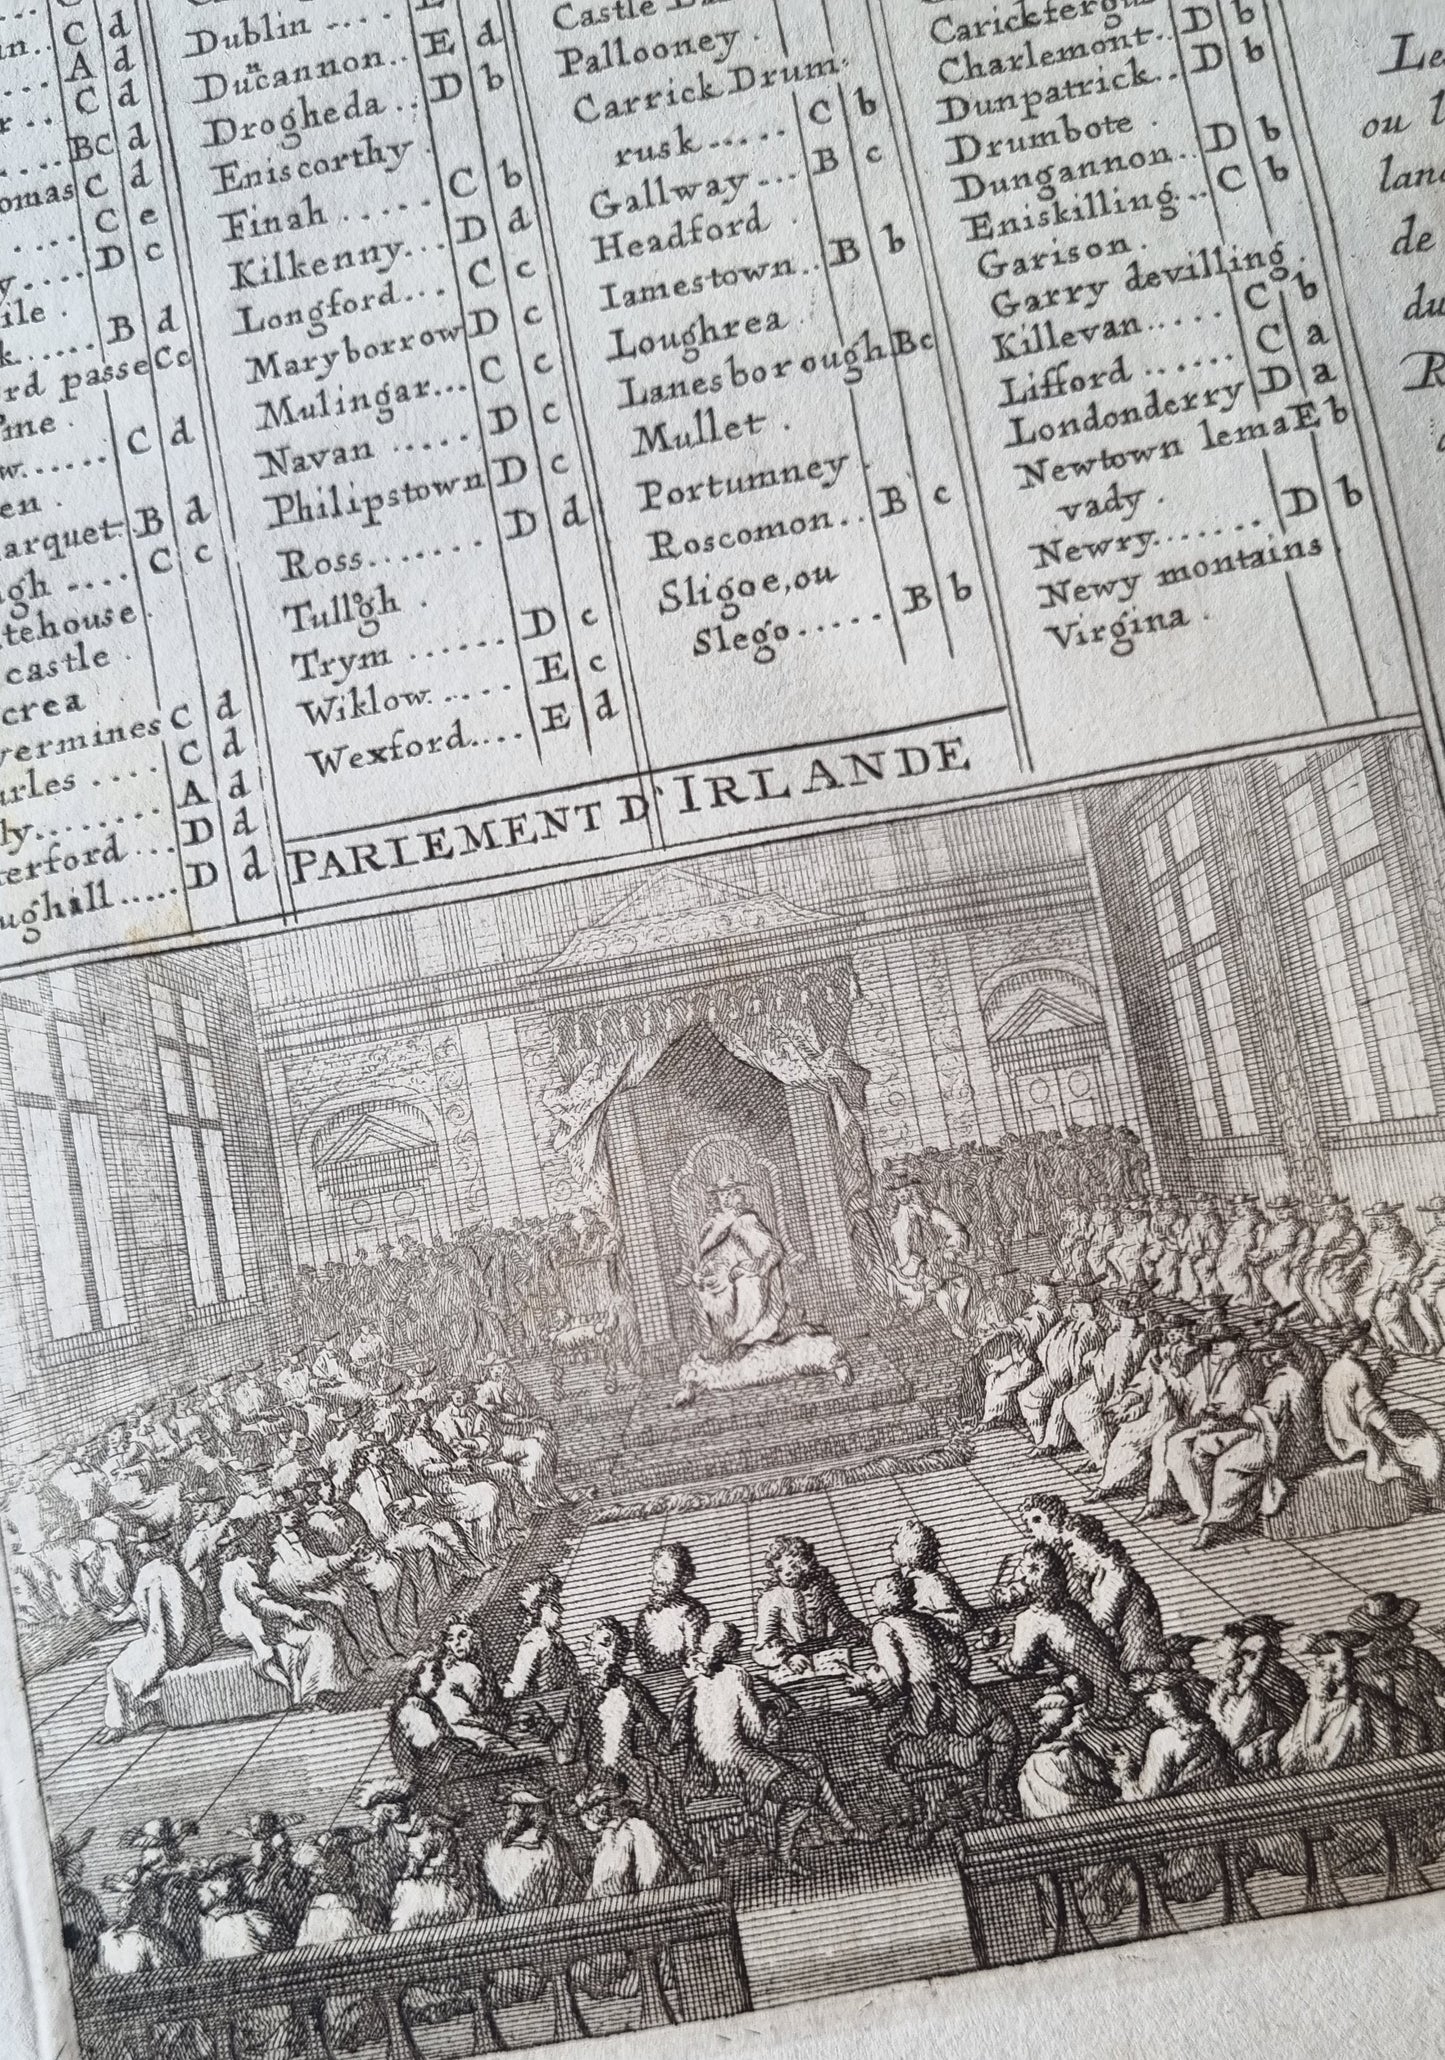 n.. C d
... A d
r .. C d
.... BC d
omas C d
.... C e
y.... D c
ile .
k..... B d
rd passe Cc
me .
w...... C d
en .
arquet. B d
gh .... C c
tehouse .
castle .
crea
vermines C d
arles .... C d
ly........ A d
erford ... D d
ughill..... D d
Dublin ....
Ducannon.. E d
Drogheda .. D b
Eniscorthy .
Finah ..... C b
Kilkenny... D d
Longford... C c
Maryborrow D c
Mulingar... C c
Navan ..... D c
Philipstown D c
Ross....... D d
Tullogh .
Trym ...... D c
Wiklow..... E c
Wexford.... E d
Castle
Pallooney .
Carrick Drum-
rusk..... C b
Gallway... B c
Headford .
Iamestown.. B b
Loughrea .
Lanesborough Bc
Mullet .
Portumney .
Roscomon.. B c
Sligoe,ou
Slego..... B b
Carickfergus
Charlemont.. D b
Dunpatrick.. D b
Drumbote .
Dungannon.. D b
Eniskilling... C b
Garison .
Garry devilling .
Killevan..... C b
Lifford ...... C a
Londonderry D a
Newtown lema E b
vady .
Newry....... D b
Newy montains
Virgina .
Le
ou l
lan
de
du
R
PARLEMENT D'IRLANDE